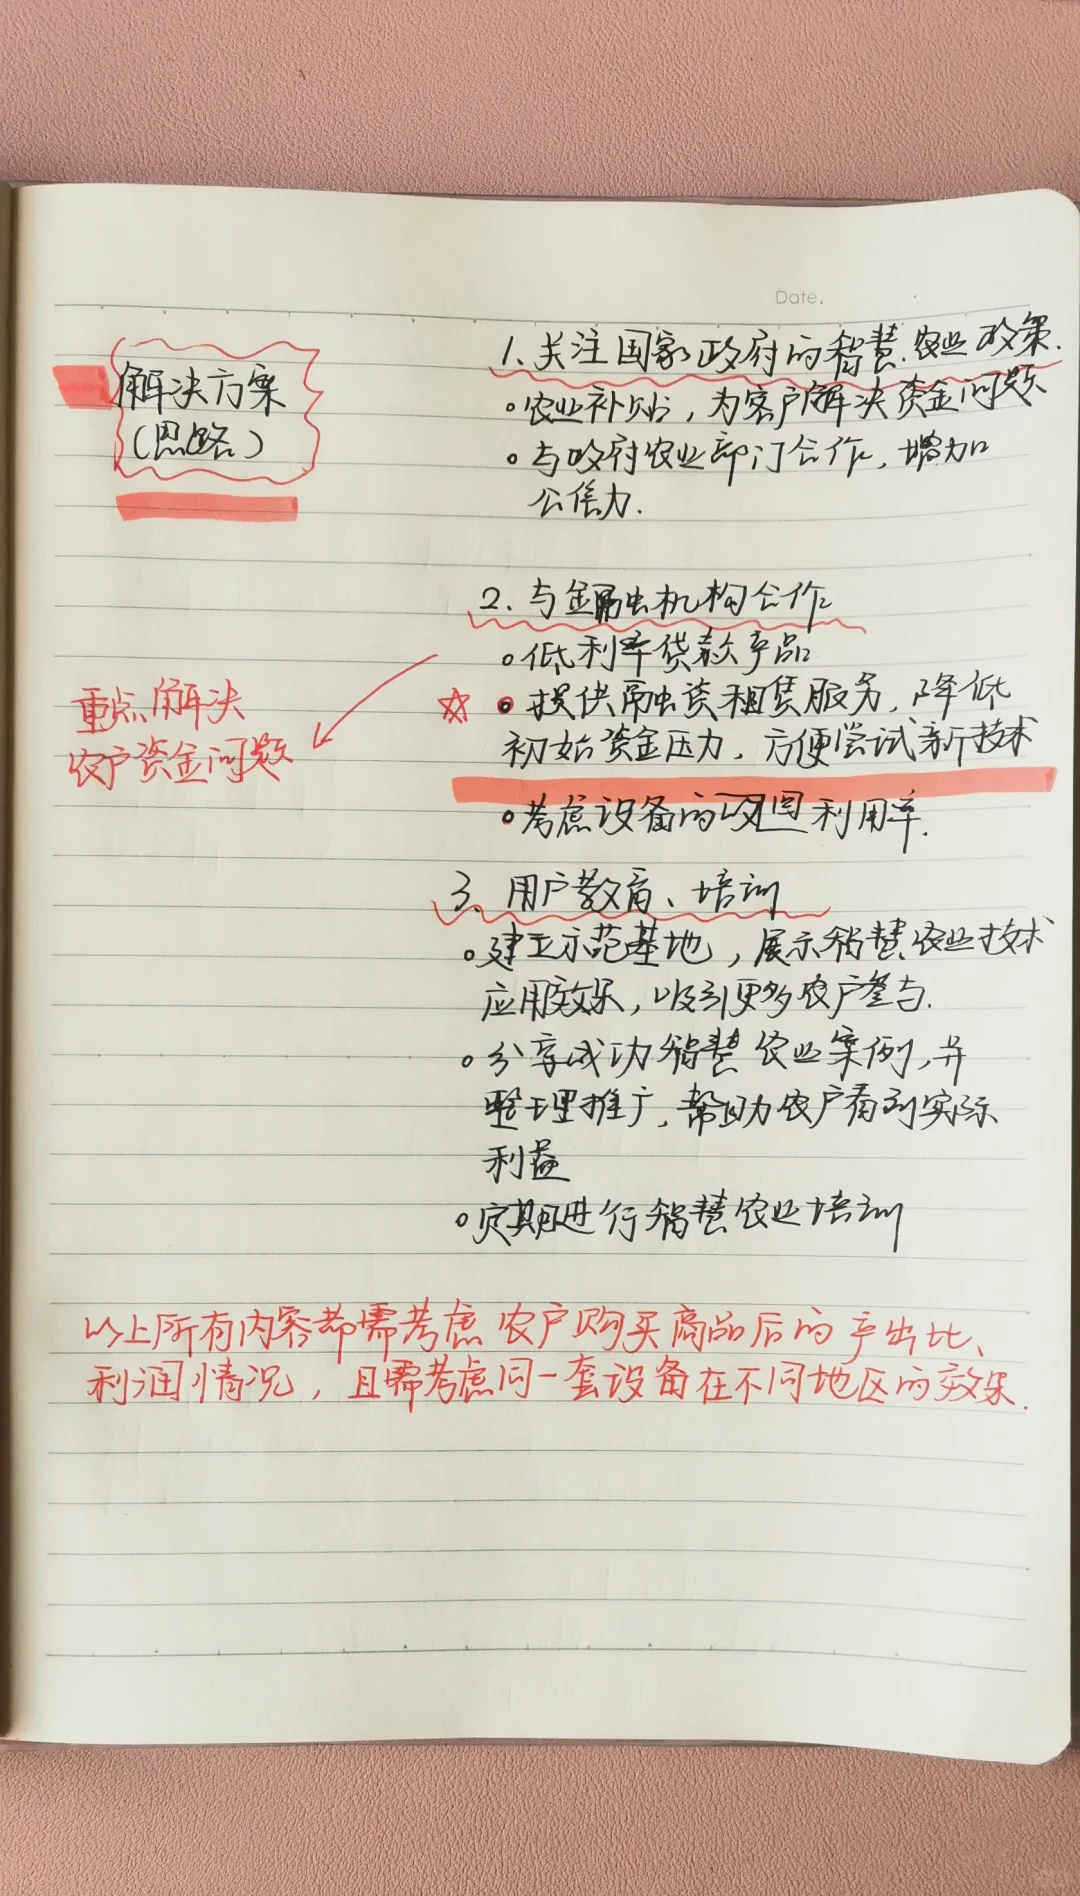 Date.
解决方案
(思路)
1. 关注国家政府的智慧农业政策.
。农业补贴，为客户解决资金问题
。与政府农业部门合作，增加
公信力.
2. 与金融机构合作
。低利率贷款产品
重点解决
农户资金问题
☆。提供融资租赁服务，降低
初始资金压力，方便尝试新技术
。考虑设备的收回利用率.
3. 用户教育、培训
。建立示范基地，展示智慧农业技术
应用效果，吸引更多农户参与.
。分享成功智慧农业案例，并
整理推广，帮助农户看到实际
利益
。定期进行智慧农业培训
以上所有内容都需考虑农户购买商品后的产出比、
利润情况，且需考虑同一套设备在不同地区的效果.